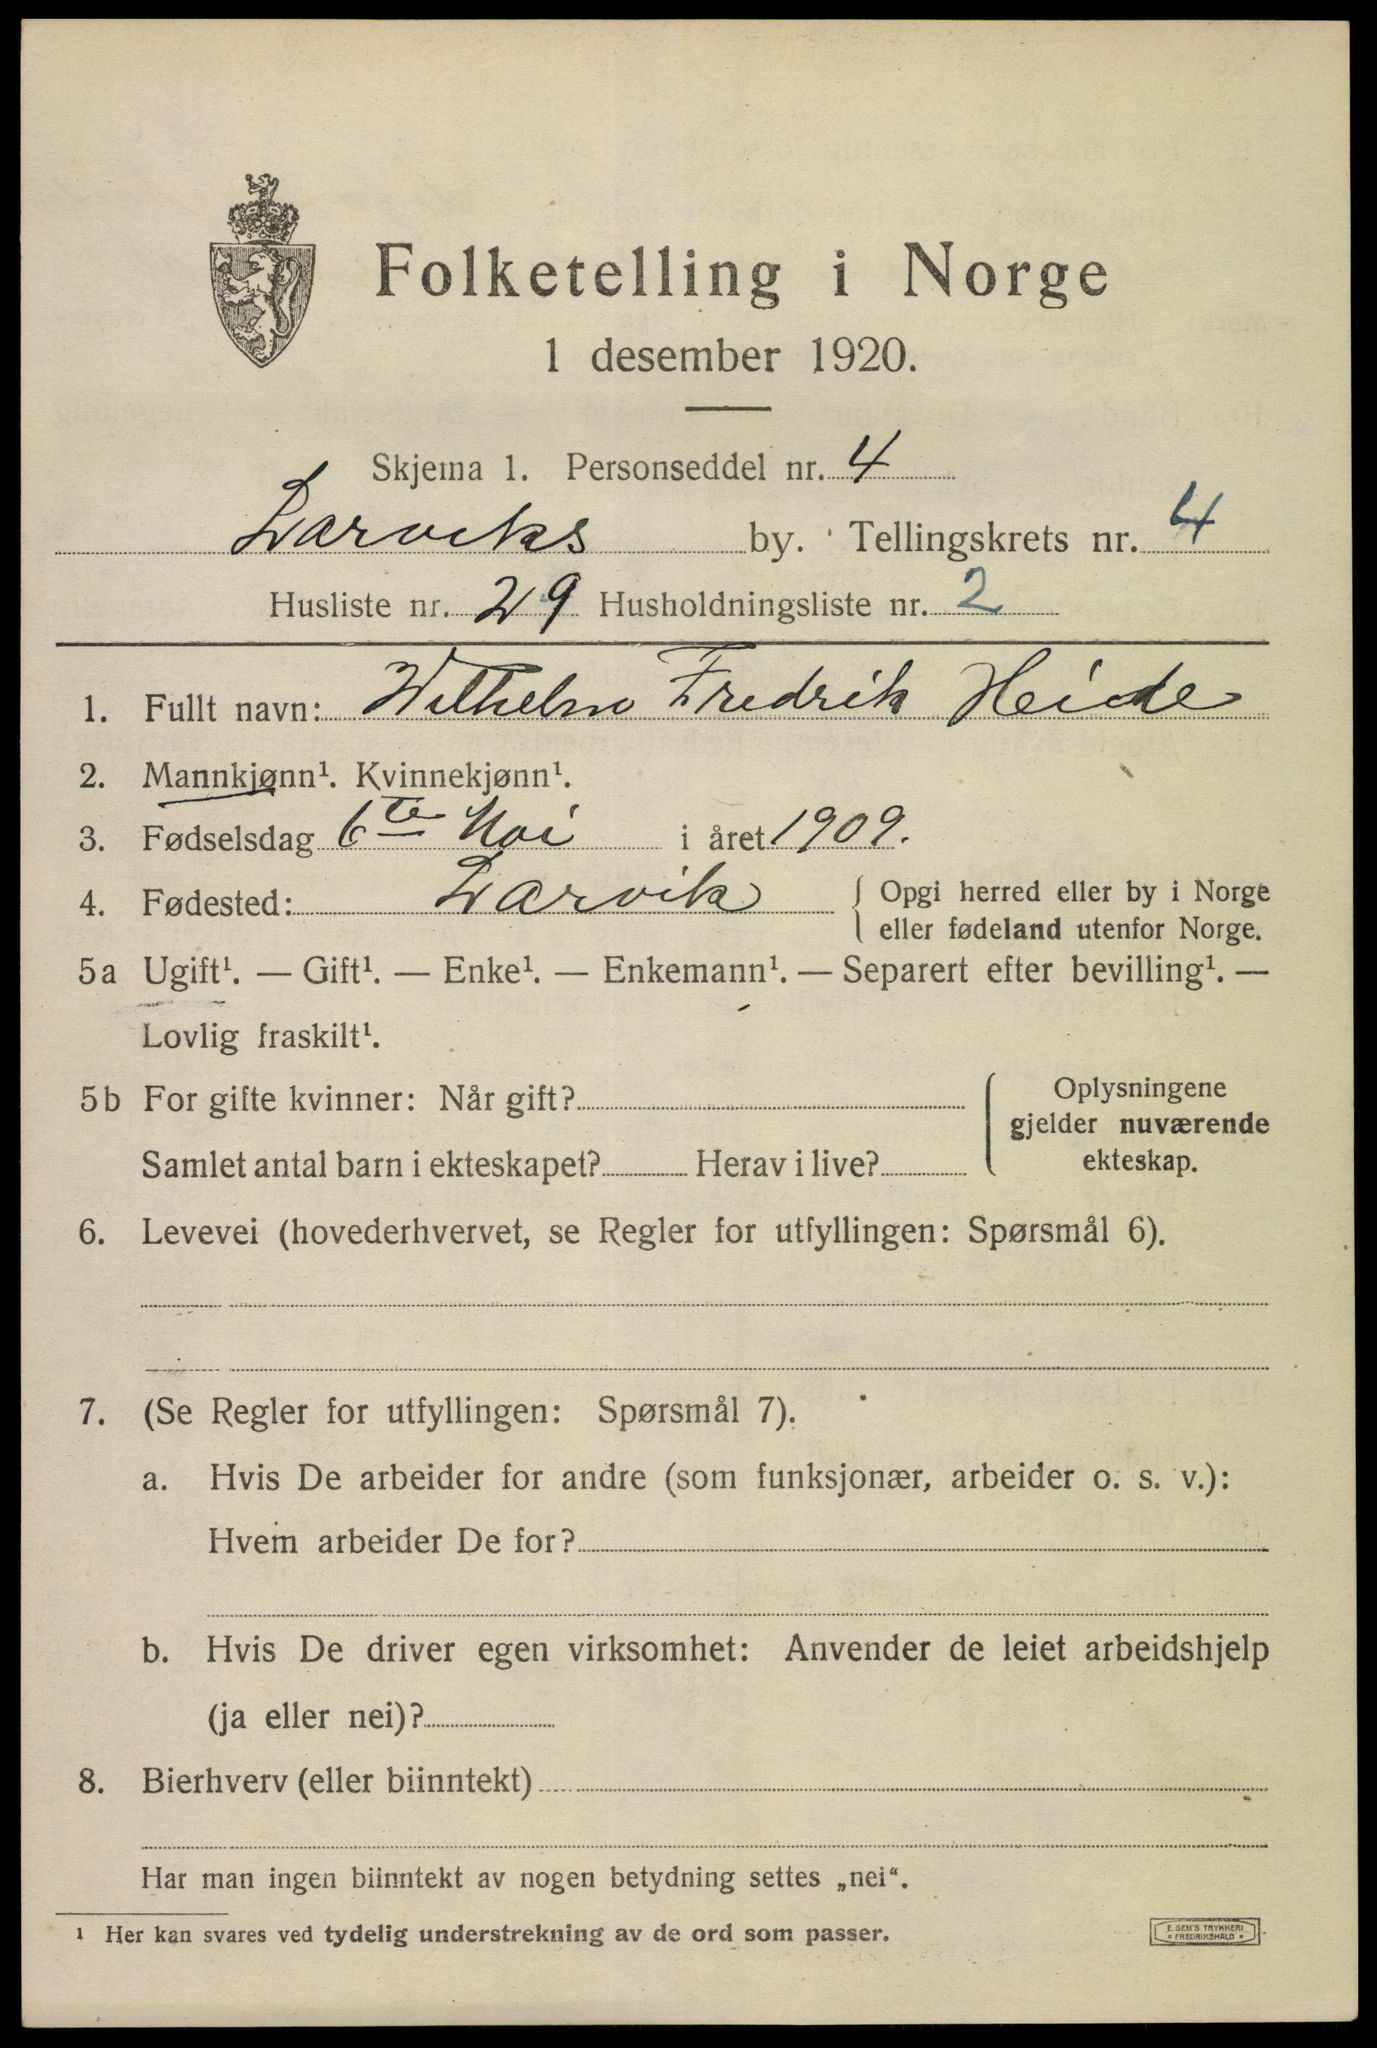 Folketelling i Norge
1 desember 1920.
Skjema 1. Personseddel nr. 4
Larviks by. Tellingskrets nr. 4
Husliste nr. 29 Husholdningsliste nr. 2
1. Fullt navn: Wilhelm Fredrik Heide
2. Mannkjønn¹. Kvinnekjønn¹.
3. Fødselsdag 6te Mai i året 1909.
4. Fødested: Larvik { Opgi herred eller by i Norge
eller fødeland utenfor Norge.
5a Ugift¹. — Gift¹. — Enke¹. — Enkemann¹. — Separert efter bevilling¹. —
Lovlig fraskilt¹.
5b For gifte kvinner: Når gift?
Samlet antal barn i ekteskapet? Herav i live?
Oplysningene
gjelder nuværende
ekteskap.
6. Levevei (hovederhvervet, se Regler for utfyllingen: Spørsmål 6).
7. (Se Regler for utfyllingen: Spørsmål 7).
a. Hvis De arbeider for andre (som funksjonær, arbeider o. s. v.):
Hvem arbeider De for?
b. Hvis De driver egen virksomhet: Anvender de leiet arbeidshjelp
(ja eller nei)?
8. Bierhverv (eller biinntekt)
Har man ingen biinntekt av nogen betydning settes „nei“.
¹ Her kan svares ved tydelig understrekning av de ord som passer.
E. SEM'S TRYKKERI
* FREDRIKSHALD *